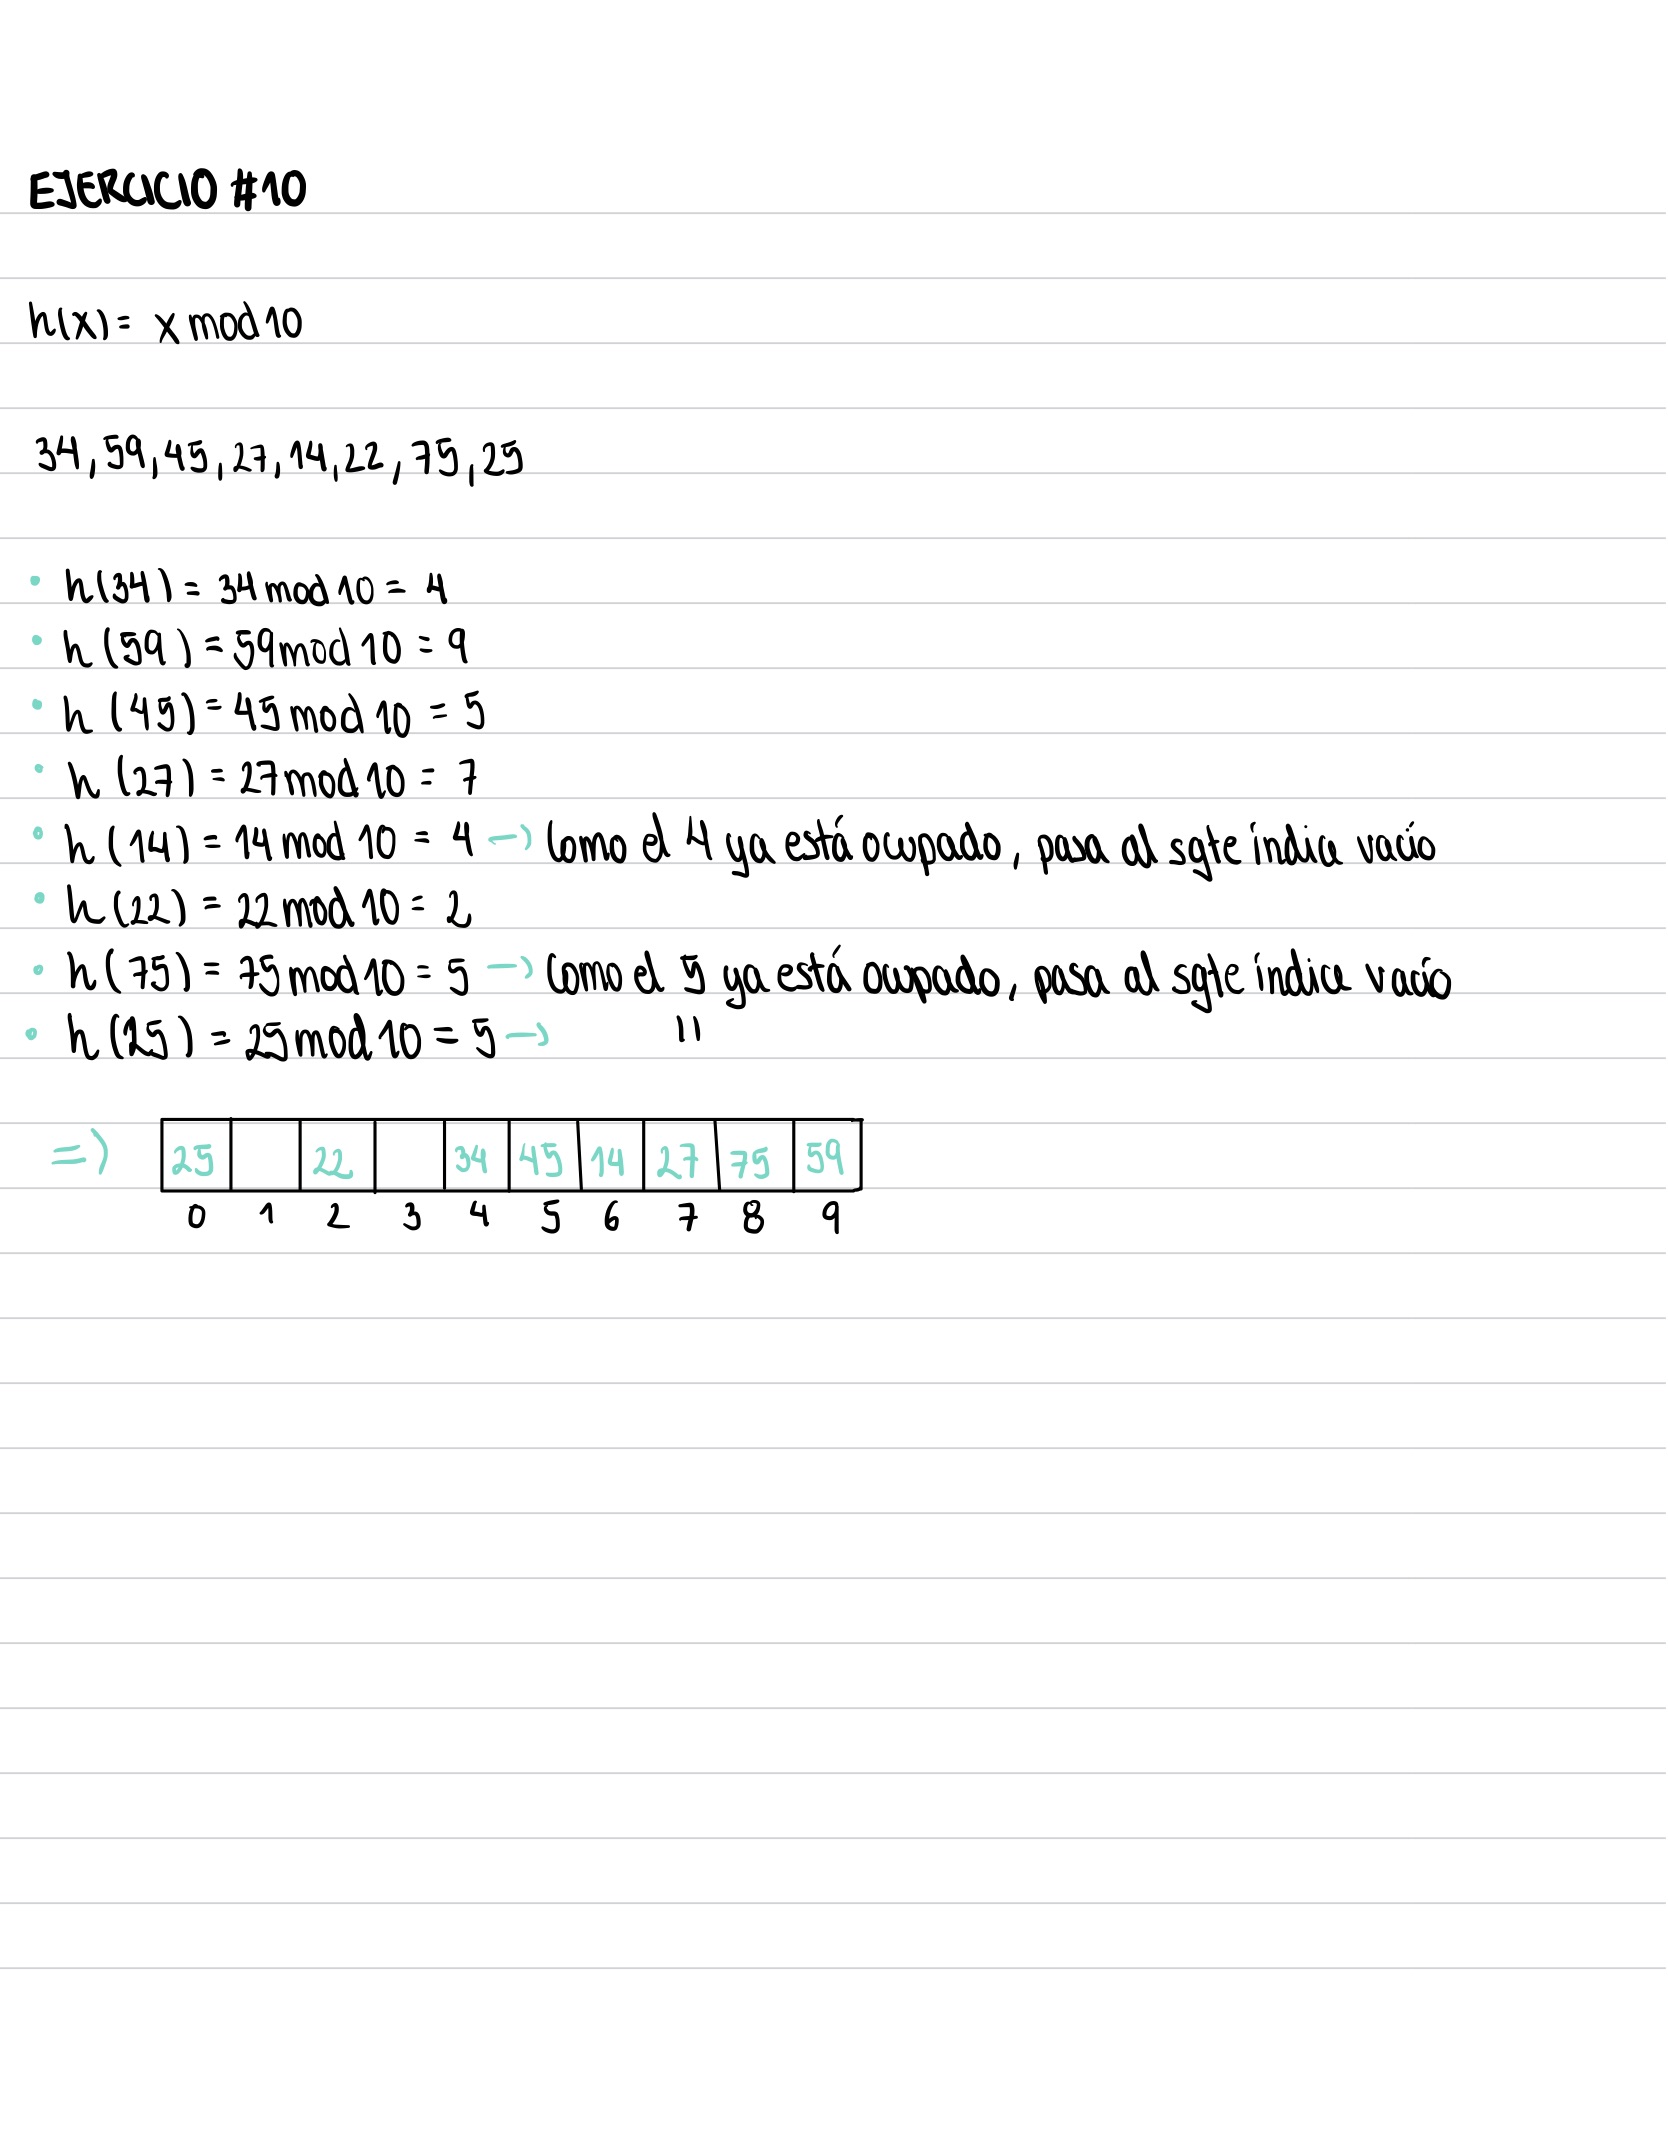 EJERCICIO #10
h(x) = x mod 10
34, 59, 45, 27, 14, 22, 75, 25
• h(34) = 34 mod 10 = 4
• h(59) = 59 mod 10 = 9
• h(45) = 45 mod 10 = 5
• h(27) = 27 mod 10 = 7
• h(14) = 14 mod 10 = 4 → Como el 4 ya está ocupado, pasa al sgte índice vacío
• h(22) = 22 mod 10 = 2
• h(75) = 75 mod 10 = 5 → Como el 5 ya está ocupado, pasa al sgte índice vacío
• h(25) = 25 mod 10 = 5 → "
⇒ 25 22 34 45 14 27 75 59
0 1 2 3 4 5 6 7 8 9